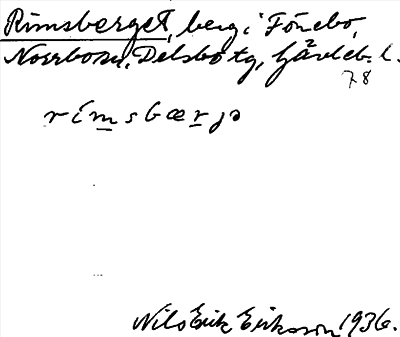 Rimsberget, berg i Fönebo,
Norrbo sn, Delsbo tg, Gävleb. l.
78
rímsbærjə
Nils Erik Eriksson 1936.